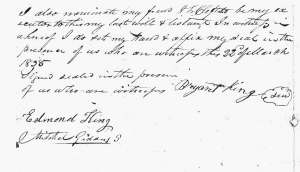 I also nominate my friend to be my ex
ecutor to this my last will & testament In witness
whereof I do set my hand & affix my seal in the
presence of us who are witnesses this 22d of March
1835
Signd sealed in the presence
of us who are witnesses Bryant King seal
Edmond King